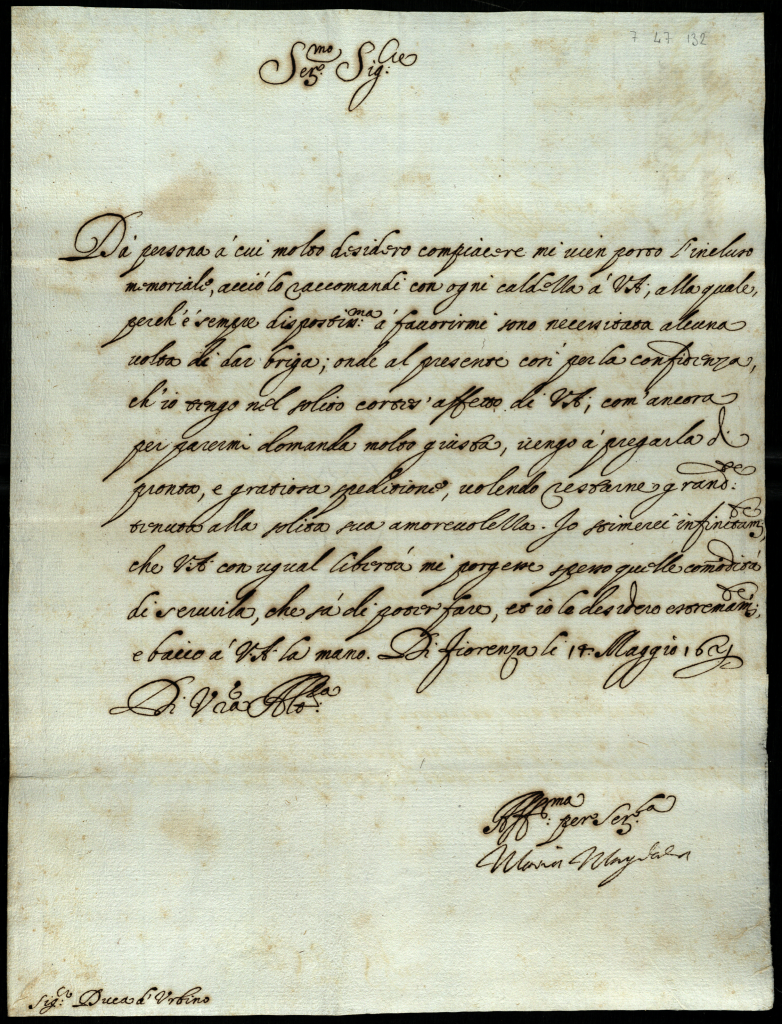 7 47 132
Ser.mo Sig.re
Da persona à cui molto desidero compiacere mi vien porto l'incluso
memoriale, acciò lo raccomandi con ogni caldezza à V.A., alla quale,
perch'è sempre dispostiss.ma à favorirmi sono necessitata alcuna
volta di dar briga; onde al presente così per la confidenza,
ch'io tengo nel solito cortes' affetto di V.A., com'ancora
per parermi domanda molto giusta, vengo à pregarla di
pronta, e gratiosa speditione, volendo restarne grandem.te
tenuta alla solita sua amorevolezza. Io stimerei infinitam.te,
che V.A. con ugual libertà mi porgesse spesso quelle comodità
di servirla, che sà di poter fare, et io lo desidero estremam.te,
e bacio à V.A. la mano. Di Fiorenza li 14 Maggio 162
Di V.ra Alt.za
Aff.ma per Ser.la
Maria Magdalena
Sig.r Duca d'Urbino